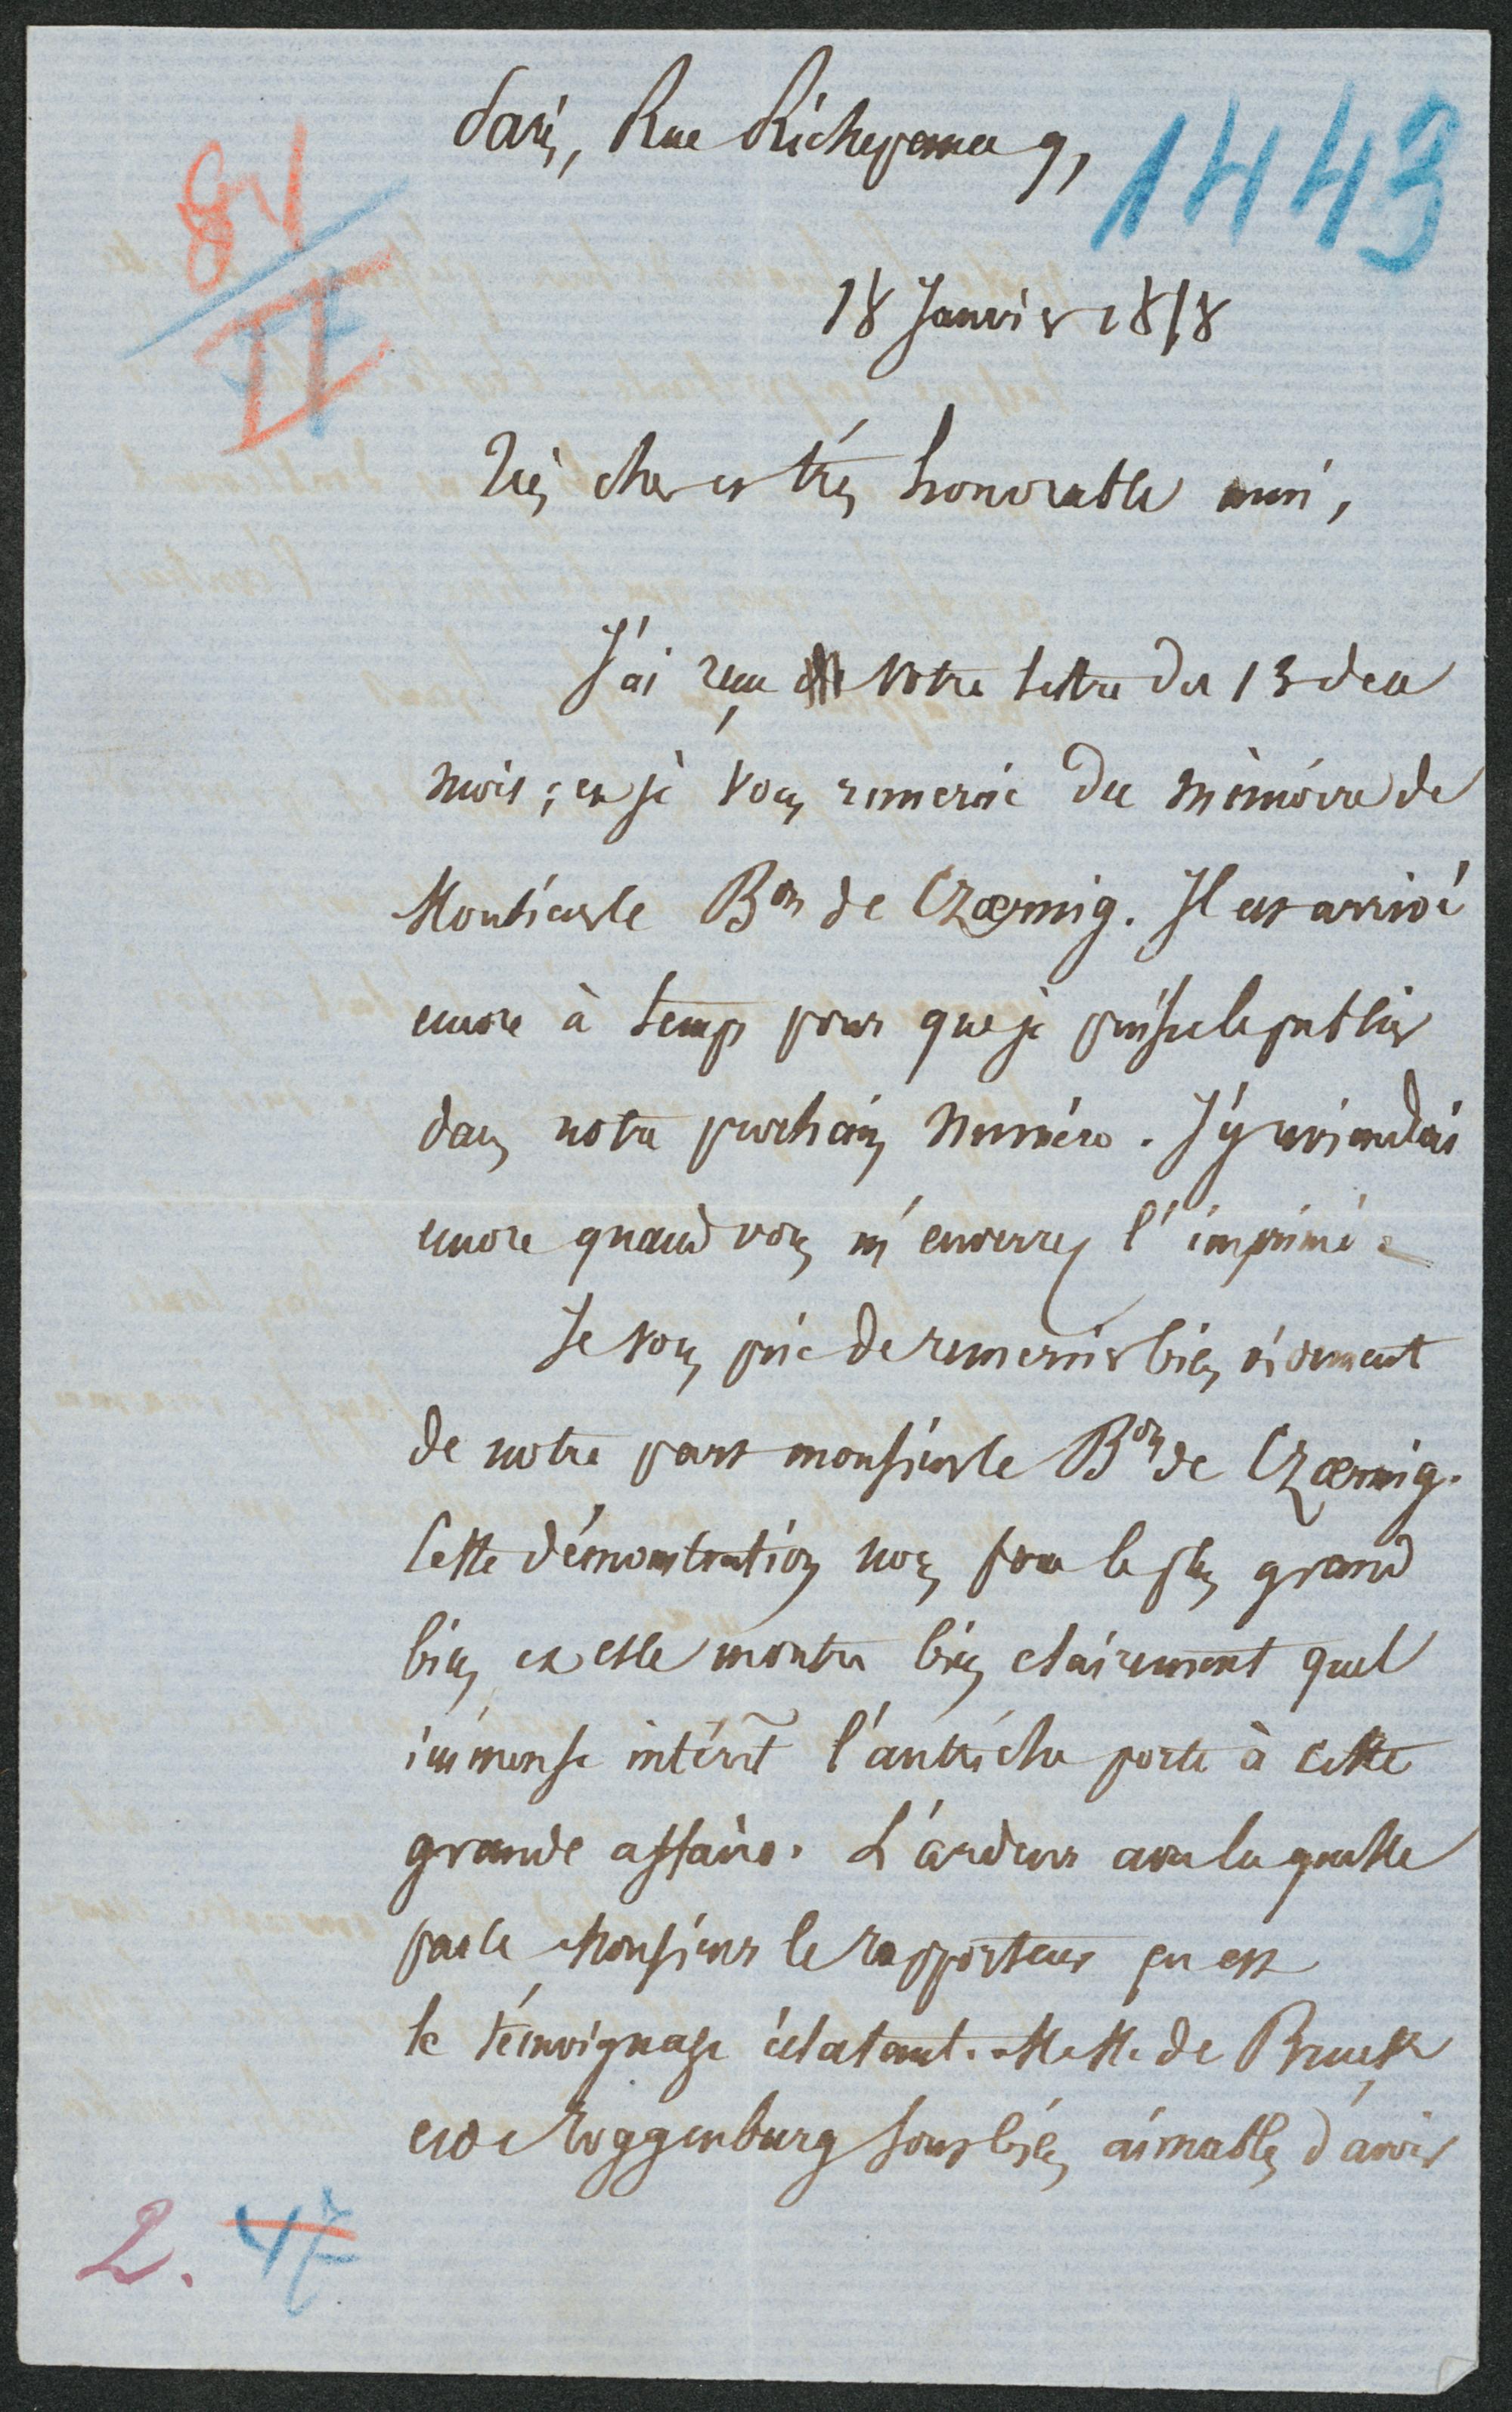 Paris, Rue Richepance 9,
1443
81
II
18 Janvier 1858
Très cher et très honorable ami,
J'ai reçu votre lettre du 13 de ce
mois; et je vous remercie du mémoire de
Monsieur le Bon de Czoernig. Il est arrivé
encore à temps pour que je puisse le publier
dans notre prochain Numéro. J'y reviendrai
encore quand vous m'enverrez l'imprimé.
Je vous prie de remercier bien vivement
de notre part monsieur le Bon de Czoernig.
Cette démonstration nous fera le plus grand
bien et elle montre bien clairement quel
immense intérêt l'autriche porte à cette
grande affaire. L'ardeur avec laquelle
parle Monsieur le rapporteur en est
le témoignage éclatant. MM. de Bruck
et de Toggenburg sont bien aimables d'avoir
2. 47